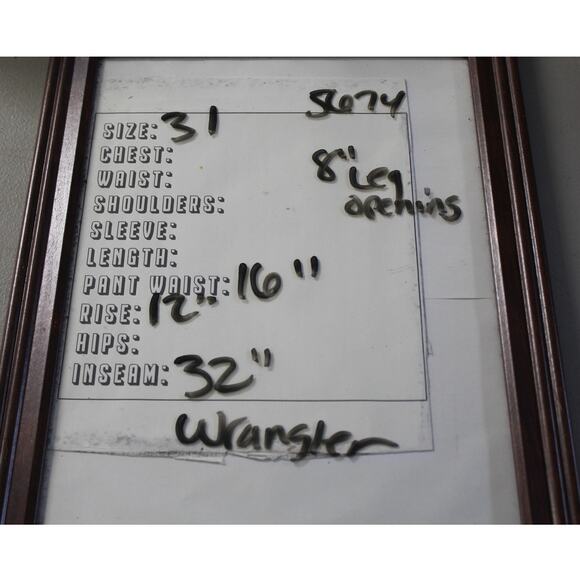 5674
SIZE: 31
CHEST:
8" Leg
WAIST:
opening
SHOULDERS:
SLEEVE:
LENGTH:
PANT WAIST: 16"
RISE: 12"
HIPS:
INSEAM: 32"
Wrangler